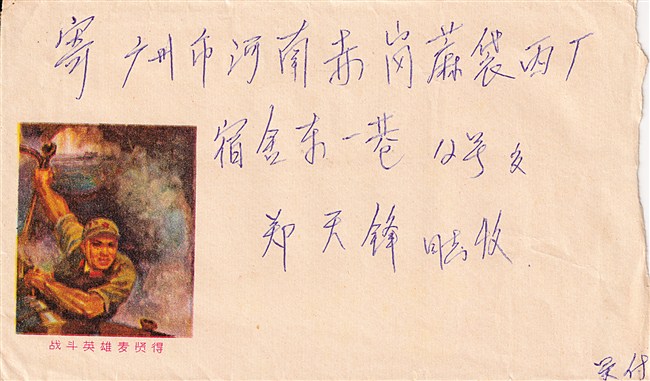 寄 广州市河南赤岗蔴袋两厂
宿舍东一巷 12号交
郑天锋 同志收
战斗英雄麦贤得